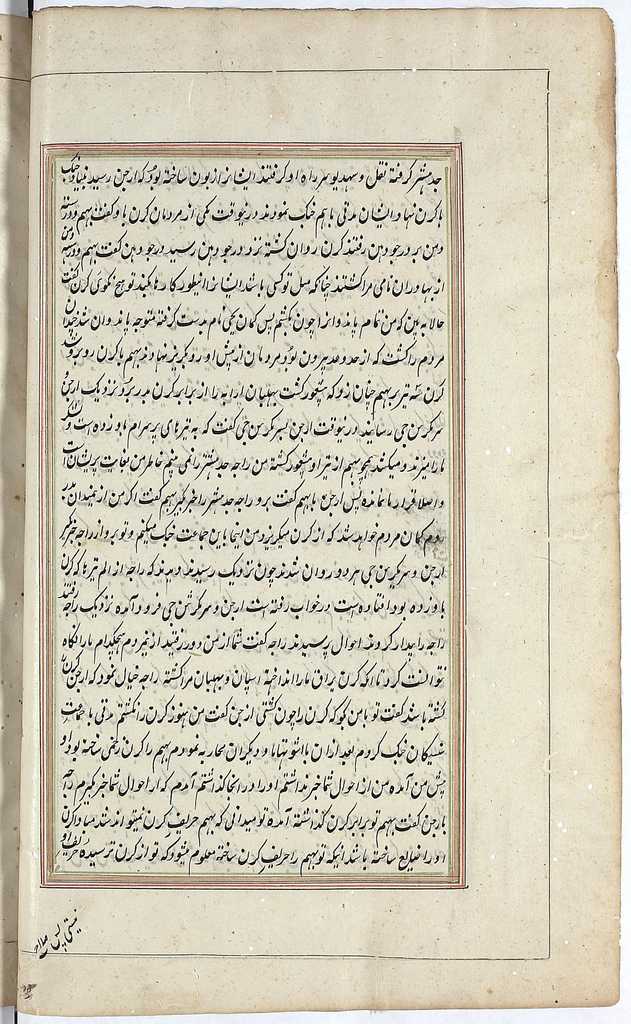 جدهشتر گرفته نقل و سهدیو سر راه او گرفتند ایشانرا زبون ساخته بود که ارجن رسید بنیاد جنک
با کرن نهاد ایشان مدتی باهم جنک نمودند درینوقت کمی از مردمان کرن با او گفت بهیم و ورسته
و من بر درجودهن رفتند کرن روان گشته نزد درجودهن رسید درجودهن گفت بهیم
از بهادران نامی مرا کشتند چنانکه مثل تو کسی باشد ایشان اینطور کارها بکنند تو هیچ نگوی کرن گفت
حالا به بین که من تمام پاندوانرا چون بکشم پس کمان بجی نام بدست گرفته متوجه پاندوان شد چندان
مردم را کشت که از حد و عد بیرون بود و مردمان از پیش او رو بگریز نهادند بهیم با کرن روبرو شد
کرن سه تیر بر بهیم چنان زد که بیشعور گشت بهلبان ارابه را از برابر کرن بدر برد نزدیک ارجن و
سر کرسن جی رسانید درینوقت ارجن بسر کرسن جی گفت که به تیرهای پرسرام بود زده است و لشکر
ما را میزند و میکشد بهیم از تیر او بیشعور گشته من راجه جدهشتر را نمی بینم خاطر من بغایت پریشان است
و اصلا قرار نمانده پس ارجن با بهیم گفت برو راجه جدهشتر را خبر بگیر بهیم گفت اگر من از میدان بدر
روم کمان مردم خواهد شد که از کرن میگریزد من اینجا باین جماعت جنک میکنم و تو برو از راجه خبر بگیر
ارجن و سر کرسن جی هر دو روان شدند چون نزدیک رسیدند دیدند که راجه از الم تیرها که کرن
باو زده بود افتاده است در خواب رفته است ارجن و سر کرشن جی فرود آمده نزدیک راجه رفتند
راجه را بیدار کردند احوال پرسیدند راجه گفت شما از من دور رفتید ازین مردم هیچکدام ما را نگاه
نتوانست کرد تا آنکه کرن یراق ما را انداخته اسپان و بهلبان مرا کشته راجه خیال نمود که ارجن کرن را
کشته باشد گفت تو با من بگو که کرن را چون کشتی ارجن گفت من هنوز کرن را نکشتم مدتی با جماعت
سنسپتکان جنک کردم بعد ازان با اشوتهاما و دیگران محاربه نمودم بهیم را کرن زخمی ساخته بود او
پیش من آمده من از احوال شما خبر نداشتم او را در انجا گذاشتم آمدم که از احوال شما خبر گیرم راجه
بارجن گفت بهیم تو برابر کرن گذاشته آمده تو میدانی که بهیم حریف کرن نمیتواند شد مبادا کرن
او را ضایع ساخته باشد اینکه تو بهیم را حریف کرن ساخته معلوم میشود که تو از کرن ترسیده حریف او
نیستی پس